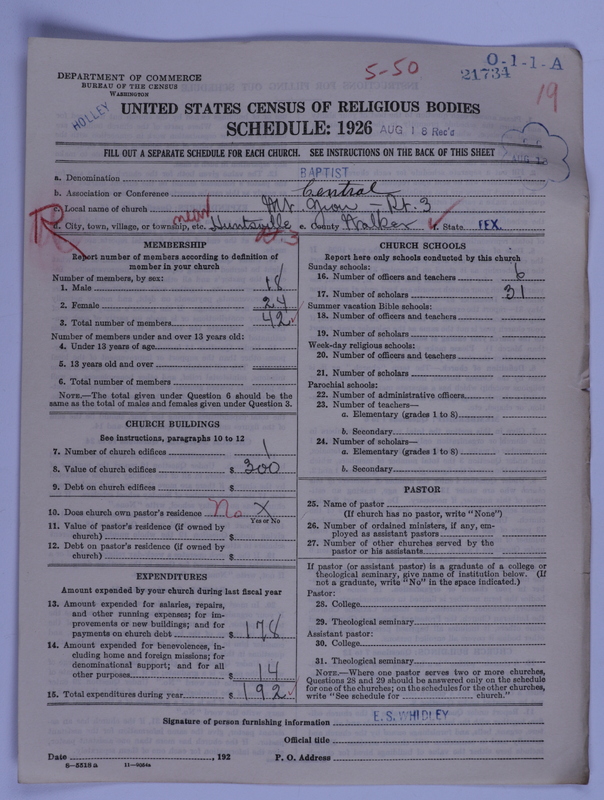 5-50
O-1-1-A
21734
19
DEPARTMENT OF COMMERCE
BUREAU OF THE CENSUS
WASHINGTON
HOLLEY
UNITED STATES CENSUS OF RELIGIOUS BODIES
SCHEDULE: 1926 AUG 18 Rec'd
AUG 18
FILL OUT A SEPARATE SCHEDULE FOR EACH CHURCH. SEE INSTRUCTIONS ON THE BACK OF THIS SHEET
a. Denomination BAPTIST
b. Association or Conference Central
R
c. Local name of church Mt. Zion - Rt. 3
d. City, town, village, or township, etc. near Huntsville e. County Walker f. State TEX.
Rt. 3
MEMBERSHIP
Report number of members according to definition of
member in your church
Number of members, by sex:
1. Male 18
2. Female 24
3. Total number of members 42
Number of members under and over 13 years old:
4. Under 13 years of age
5. 13 years old and over
6. Total number of members
NOTE.—The total given under Question 6 should be the
same as the total of males and females given under Question 3.
CHURCH BUILDINGS
See instructions, paragraphs 10 to 12
7. Number of church edifices 1
8. Value of church edifices $ 300
9. Debt on church edifices $
10. Does church own pastor's residence? No X
Yes or No
11. Value of pastor's residence (if owned by
church) $
12. Debt on pastor's residence (if owned by
church) $
EXPENDITURES
Amount expended by your church during last fiscal year
13. Amount expended for salaries, repairs,
and other running expenses; for im-
provements or new buildings; and for
payments on church debt $ 178
14. Amount expended for benevolences, in-
cluding home and foreign missions; for
denominational support; and for all
other purposes $ 14
15. Total expenditures during year $ 192
CHURCH SCHOOLS
Report here only schools conducted by this church
Sunday schools:
16. Number of officers and teachers 6
17. Number of scholars 31
Summer vacation Bible schools:
18. Number of officers and teachers
19. Number of scholars
Week-day religious schools:
20. Number of officers and teachers
21. Number of scholars
Parochial schools:
22. Number of administrative officers
23. Number of teachers—
a. Elementary (grades 1 to 8)
b. Secondary
24. Number of scholars—
a. Elementary (grades 1 to 8)
b. Secondary
PASTOR
25. Name of pastor
(If church has no pastor, write "None")
26. Number of ordained ministers, if any, em-
ployed as assistant pastors
27. Number of other churches served by the
pastor or his assistants
If pastor (or assistant pastor) is a graduate of a college or
theological seminary, give name of institution below. (If
not a graduate, write "No" in the space indicated.)
Pastor:
28. College
29. Theological seminary
Assistant pastor:
30. College
31. Theological seminary
NOTE.—Where one pastor serves two or more churches,
Questions 28 and 29 should be answered only on the schedule
for one of the churches; on the schedules for the other churches,
write "See schedule for church."
Signature of person furnishing information E. S. WHIDLEY
Official title
Date , 192 P. O. Address